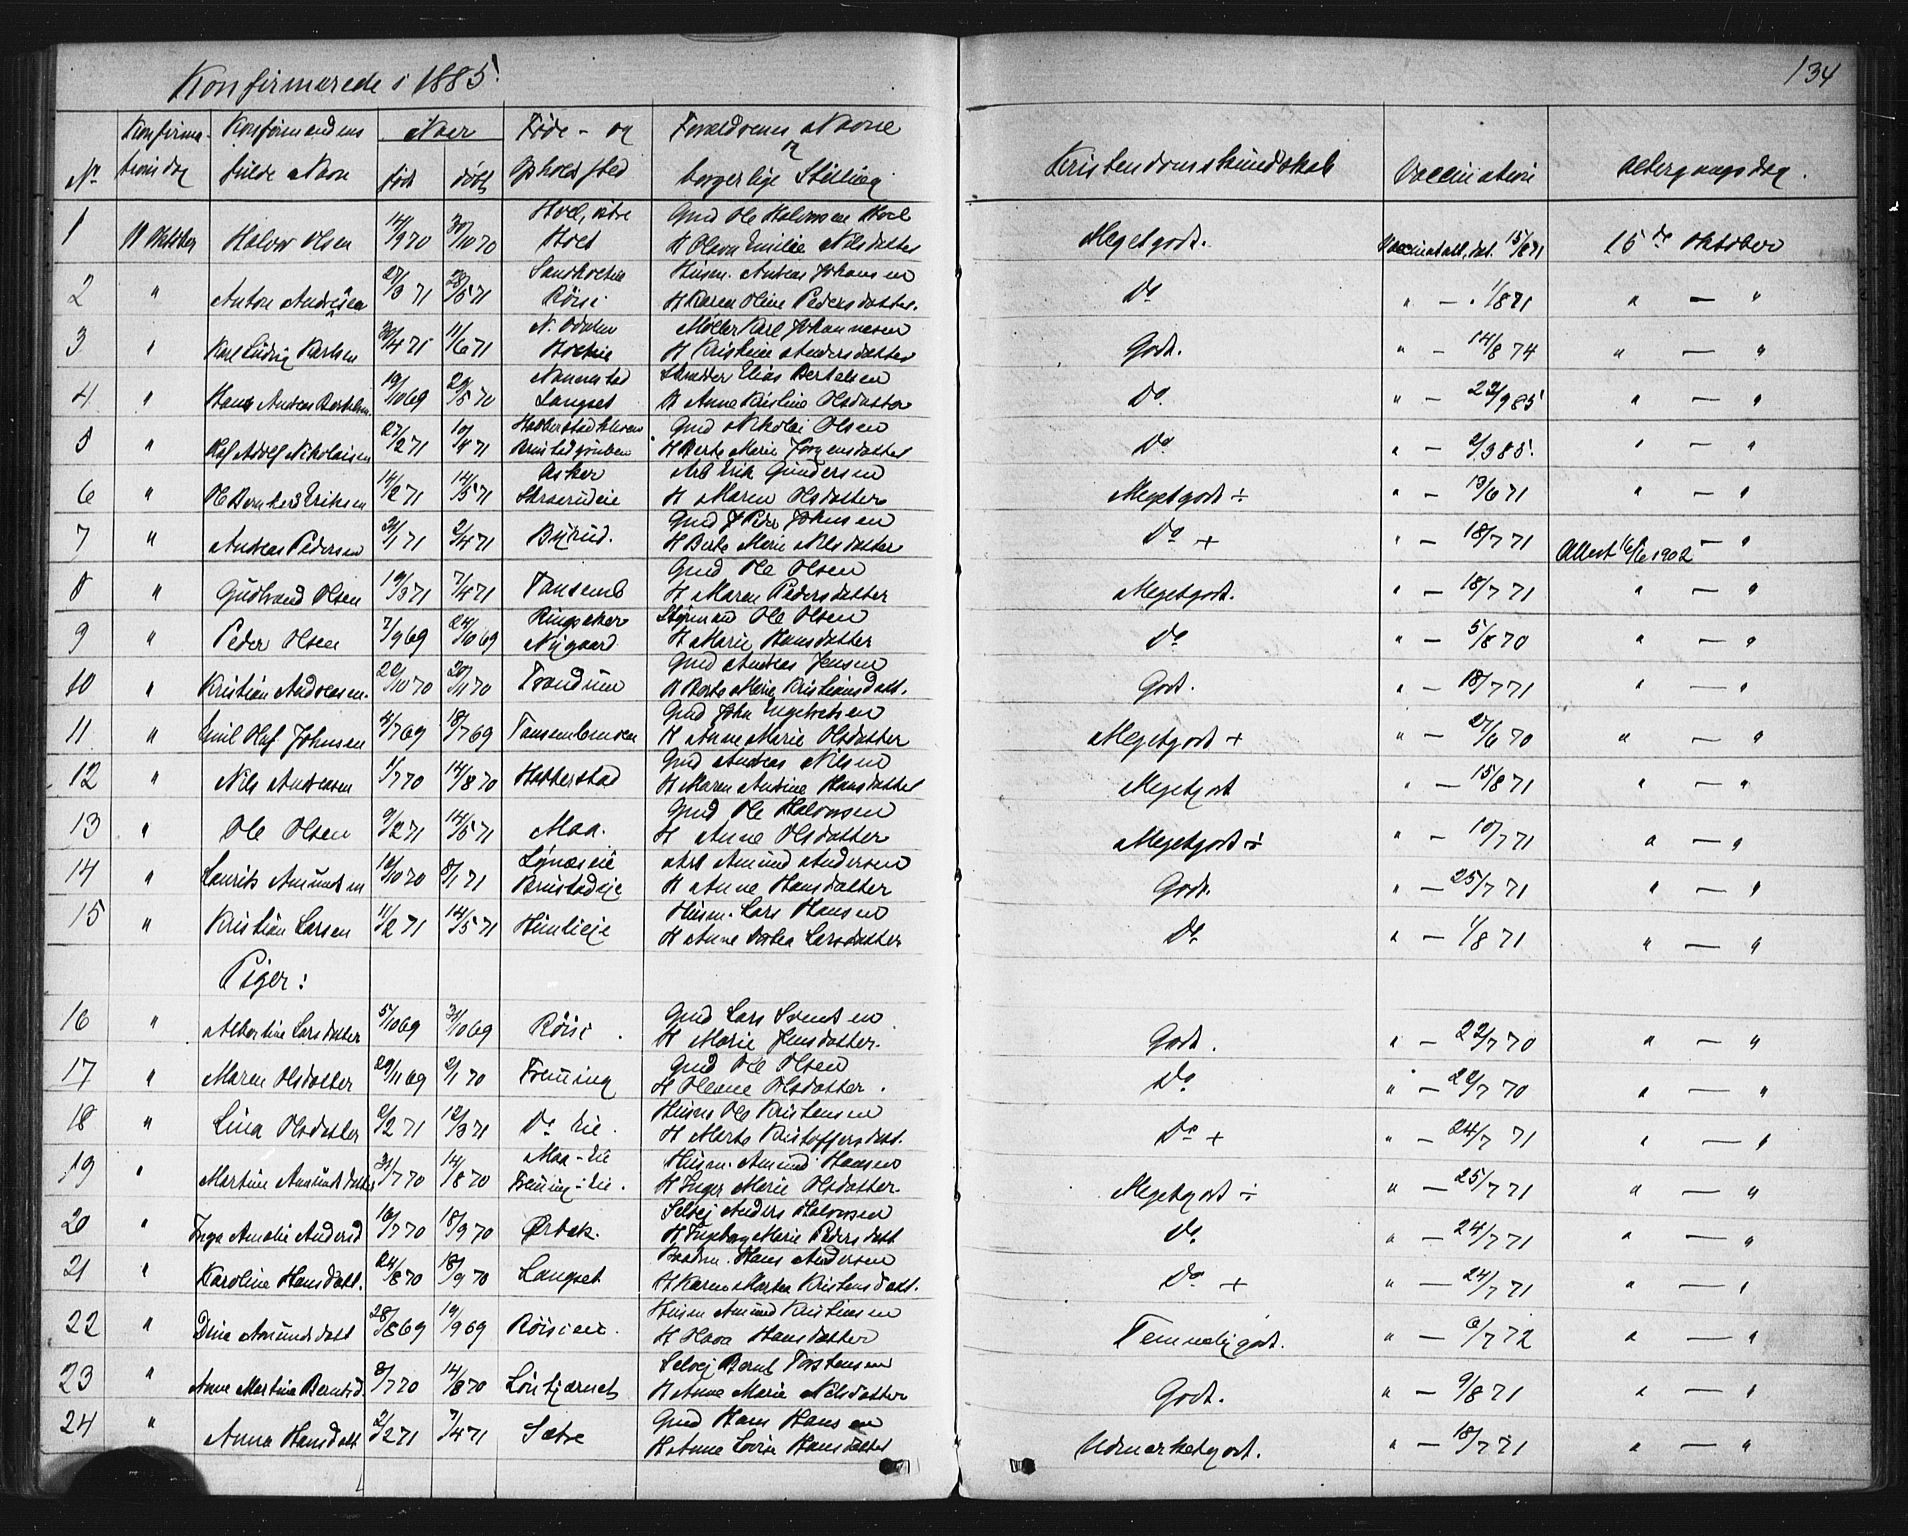 134
Konfirmerede i 1885.
No Konfirmationsdag Konfirmandens fulde Navn Naar født døbt Føde- og Opholdssted Forældrenes Navne og borgerlige Stilling Kristendomskundskab Vaccination Altergangsdag.
1 11 Oktober Halvor Olsen 14/9 70 30/10 70 Hoel, Gmd Ole Halvorsen Hoel H Olava Emilie Nilsdatter Megetgodt. Vaccinat. att. dat. 15/8 71 15de Oktober
2 " Anton Andersen 27/3 71 28/5 71 Røisi Husm. Andreas Johansen H Karen Oline Pedersdatter. Do " — 1/8 71 " — "
3 " Karl Ludvig Karlsen 30/4 71 11/6 71 N. Odalen Møller Karl Johannesen H Kristine Andersdatter Godt. " — 14/8 74 " — "
4 " Hans Andreas Bertelsen 19/10 69 29/5 70 Nannestad Langset Skrædder Elias Bertelsen H Anne Kristine Olsdatter Do. " — 22/9 85 " — "
5 " Adolf Nikolaisen 27/2 71 10/4 71 Gmd Nikolai Olsen H Berte Marie Jørgensdatter Do " — 2/3 85. " — "
6 " Ole Bernhard Eriksen 14/2 71 14/5 71 Asker Arb Erik Gundersen H Maren Olsdatter Megetgodt ÷ " — 13/6 71 " — "
7 " Andreas Pedersen 31/1 71 2/4 71 Byrud. Gmd Peder Johnsen H Berte Marie Nilsdatter Do + " — 18/7 71 Attest 16/6 1902 — "
8 " Gudbrand Olsen 19/3 71 7/4 71 Tønsemb Gmd Ole Olsen H Maren Pedersdatter Megetgodt. " — 18/7 71 " — "
9 " Peder Olsen 7/9 69 24/10 69 Ringsaker Nygaard Styrmand Ole Olsen H Marie Hansdatter Do " — 5/8 70 " — "
10 " Kristian Andreasen. 22/10 70 20/11 70 Trandum Gmd Andreas Jensen H Berte Marie Kristiansdatt. Godt. " — 18/7 71 " — "
11 " Emil Olaf Johnsen 4/7 69 18/7 69 Gmd John Engebretsen H Anne Marie Olsdatter Megetgodt + " — 27/6 70 " — "
12 " Nils Andreasen 1/7 70 14/8 70 Habberstad Gmd Andreas Nilsen H Maren Andrine Hansdatter Megetgodt " — 15/8 71 " — "
13 " Ole Olsen 9/2 71 14/5 71 Maa. Gmd Ole Halvorsen H Anne Olsdatter Megetgodt ÷ " — 10/7 71 " — "
14 " Laurits Amundsen 16/10 70 8/1 71 Brustadeie Arb Amund Andersen H Anne Hansdatter Godt. " — 25/7 71 " — "
15 " Kristian Larsen 11/2 71 14/5 71 Husm. Lars Hansen H Anne Larsdatter Do. " — 1/8 71 " — "
Piger:
16 " Albertine Larsdatter 5/10 69 31/10 69 Røisi. Gmd Lars H Marie Jensdatter. Godt. " — 22/7 70 " — "
17 " Maren Olsdatter 29/11 69 2/1 70 Frenning Gmd Ole Olsen H Olene Olsdatter. Do " — 22/7 70 " — "
18 " Lina Olsdatter 2/2 71 12/3 71 Do eie. Husm Ole Kristensen H Marte Kristoffersdatt. Do + " — 24/7 71 " — "
19 " Martine Amundsdatter 31/7 70 14/8 70 Maa-eie Frenning-eie. Husm. Amund Hansen H Inger Marie Olsdatter. Megetgodt ÷ " — 25/7 71 " — "
20 " Inga Amalie Andersd 16/7 70 18/9 70 Ørbek. Selvej Anders Halvorsen H Ingeborg Marie Pedersdatt Do. " — 24/7 71 " — "
21 " Karoline Hansdatt. 24/8 70 18/9 70 Langset. Hans Andersen H Karen Martea Kristensdatt. Do + " — 24/7 71 " — "
22 " Dina Amundsdatt 28/8 69 19/9 69 Røisieie. Husm Amund Kristiansen H Hansdatter Temmeliggodt. " — 6/7 72 " — "
23 " Anne Martine Berntsd. 8/7 70 14/8 70 Løntjærnet Selvej Bernt Torstensen H Anne Marie Nilsdatter Godt. " — 9/8 71 " — "
24 " Anna Hansdatt 2/2 71 7/4 71 Sætre Gmd Hans Hansen H Anne Lovise Hansdatter Udmærketgodt. " — 18/7 71 " — "